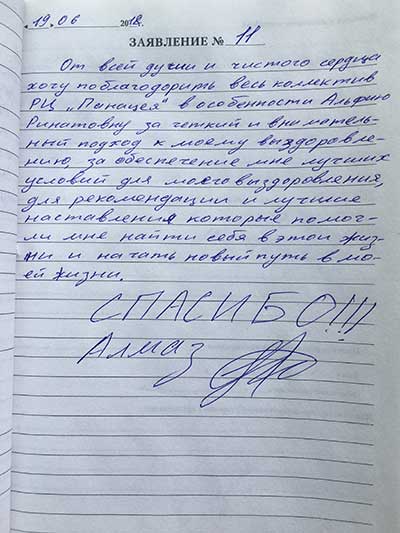 19. 06 2018г.
ЗАЯВЛЕНИЕ № 11
От всей души и чистого сердца
хочу поблагодорить весь коллектив
РЦ „Панацея" в особенности Альфию
Ринатовну за четкий и вниматель-
ный подход к моему выздоровле-
нию, за обеспечение мне лучших
условий для моего выздоровления,
для рекомендации и лучшие
наставления которые помог-
ли мне найти себя в этой жиз-
ни и начать новый путь в мо-
ей жизни.
СПАСИБО!!!
Алмаз